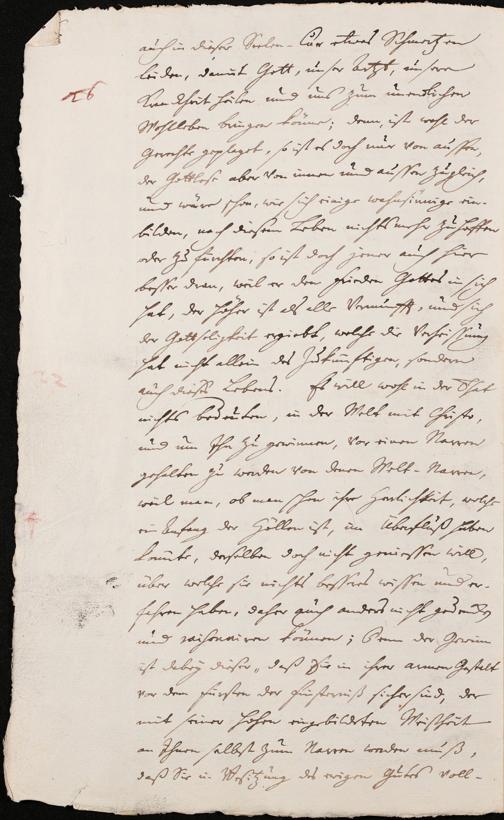 auch in dieser Seelen-Cur etwas Schmertzen
leiden, damit Gott, unser Artzt, unsere
Kranckheit heilen und uns zum unendlichen
26
Wohlleben bringen könne; denn, ist wohl der
Gerechte geplaget, so ist es doch nur von aussen,
der Gottlose aber von innen und aussen zugleich,
und wäre schon, wie sich einige wahnsinnige ein-
bilden, nach diesem Leben nichts mehr zu hoffen
oder zu fürchten, so ist doch jener auch hier
besser dran, weil er den Frieden Gottes in sich
hat, der höher ist als alle Vernunfft, und sich
der Gottseligkeit ergiebt, welche die Verheissung
hat nicht allein des Zukünftigen, sondern
auch dieses Lebens. Es will wohl in der That
nichts bedeuten, in der Welt mit Christo,
und um Ihn zu gewinnen, vor einen Narren
gehalten zu werden von denen Welt-Narren,
weil man, ob man schon ihre Herrlichkeit, welche
ein Anfang der Höllen ist, im Überfluß haben
könnte, derselben doch nicht geniessen will,
über welche sie nichts bessers wissen und er-
fahren haben, daher auch anders nicht
und raisonniren können; Denn der Gewinn
ist dabey dieser, daß Sie in ihrer armen Gestalt
vor dem Fürsten der Finsterniß sicher sind, der
mit seiner hohen eingebildeten Weisheit
an Ihnen selbst zum Narren werden muß,
daß Sie in Besitzung des ewigen Gutes voll-